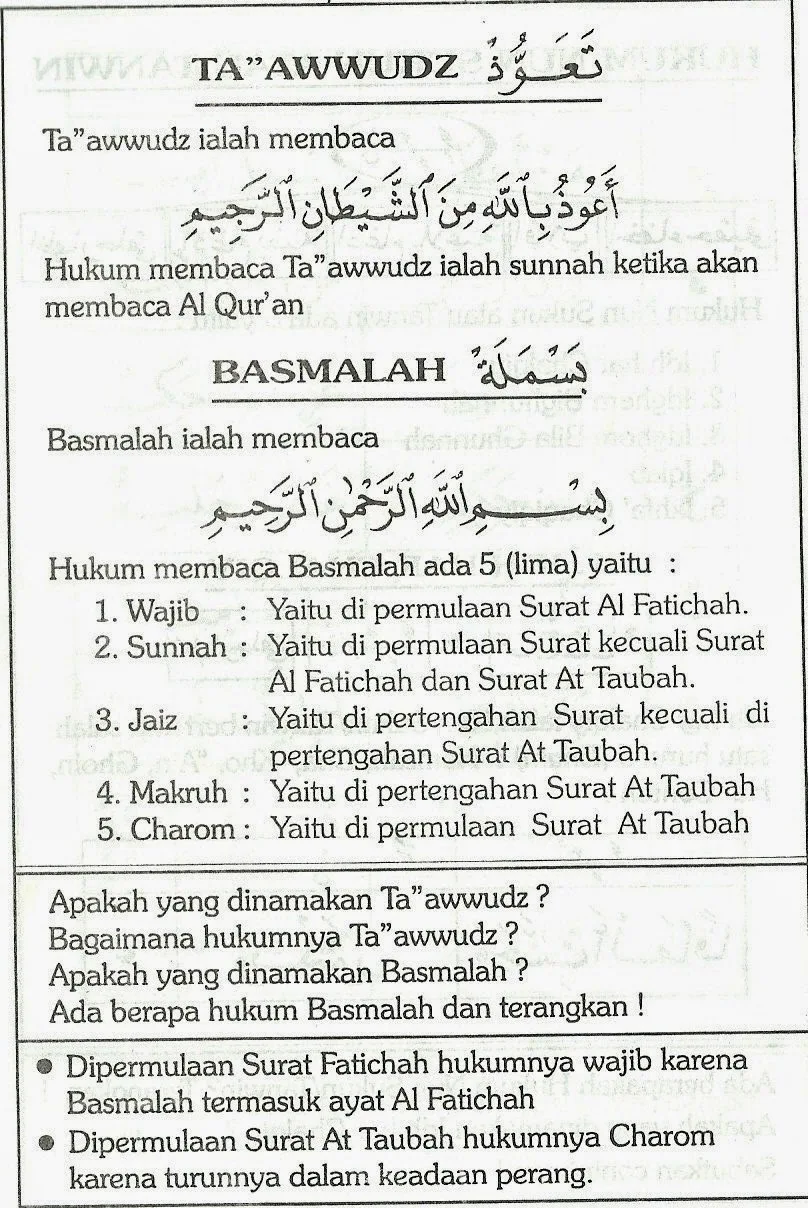 TA”AWWUDZ تَعَوُّذْ
Ta”awwudz ialah membaca
أَعُوْذُ بِاللّٰهِ مِنَ الشَّيْطَانِ الرَّجِيْمِ
Hukum membaca Ta”awwudz ialah sunnah ketika akan
membaca Al Qur’an
BASMALAH بَسْمَلَةْ
Basmalah ialah membaca
بِسْمِ اللّٰهِ الرَّحْمٰنِ الرَّحِيْمِ
Hukum membaca Basmalah ada 5 (lima) yaitu :
1. Wajib : Yaitu di permulaan Surat Al Fatichah.
2. Sunnah : Yaitu di permulaan Surat kecuali Surat
Al Fatichah dan Surat At Taubah.
3. Jaiz : Yaitu di pertengahan Surat kecuali di
pertengahan Surat At Taubah.
4. Makruh : Yaitu di pertengahan Surat At Taubah
5. Charom : Yaitu di permulaan Surat At Taubah
Apakah yang dinamakan Ta”awwudz ?
Bagaimana hukumnya Ta”awwudz ?
Apakah yang dinamakan Basmalah ?
Ada berapa hukum Basmalah dan terangkan !
• Dipermulaan Surat Fatichah hukumnya wajib karena
Basmalah termasuk ayat Al Fatichah
• Dipermulaan Surat At Taubah hukumnya Charom
karena turunnya dalam keadaan perang.